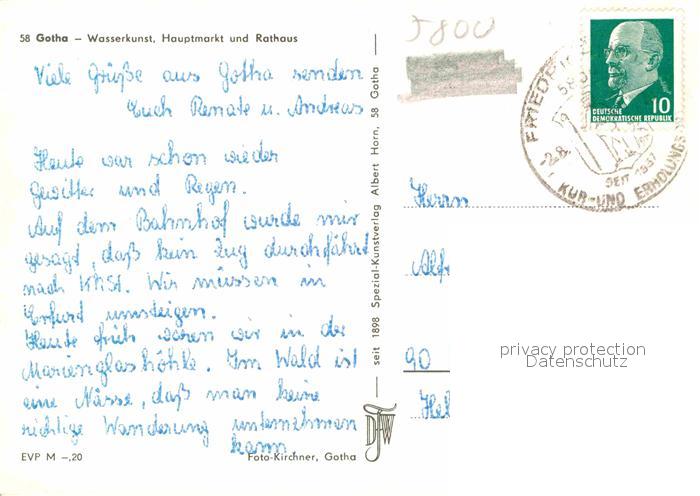 58 Gotha – Wasserkunst, Hauptmarkt und Rathaus
Viele Grüße aus Gotha senden
Euch Renate u. Andreas
Heute war schon wieder
Gewitter und Regen.
Auf dem Bahnhof wurde mir
gesagt, daß kein Zug durchfährt
nach KMSt. Wir müssen in
Erfurt umsteigen.
Heute früh waren wir in der
Marienglashöhle. Im Wald ist
eine Nässe, daß man keine
richtige Wanderung unternehmen
kann.
EVP M –,20
Foto-Kirchner, Gotha
seit 1898 Spezial-Kunstverlag Albert Horn, 58 Gotha
DFW
5800
DEUTSCHE
DEMOKRATISCHE REPUBLIK
10
SEIT 1837
KUR- UND ERHOLUNGS
Herrn
Alfr
90
Hel
privacy protection
Datenschutz